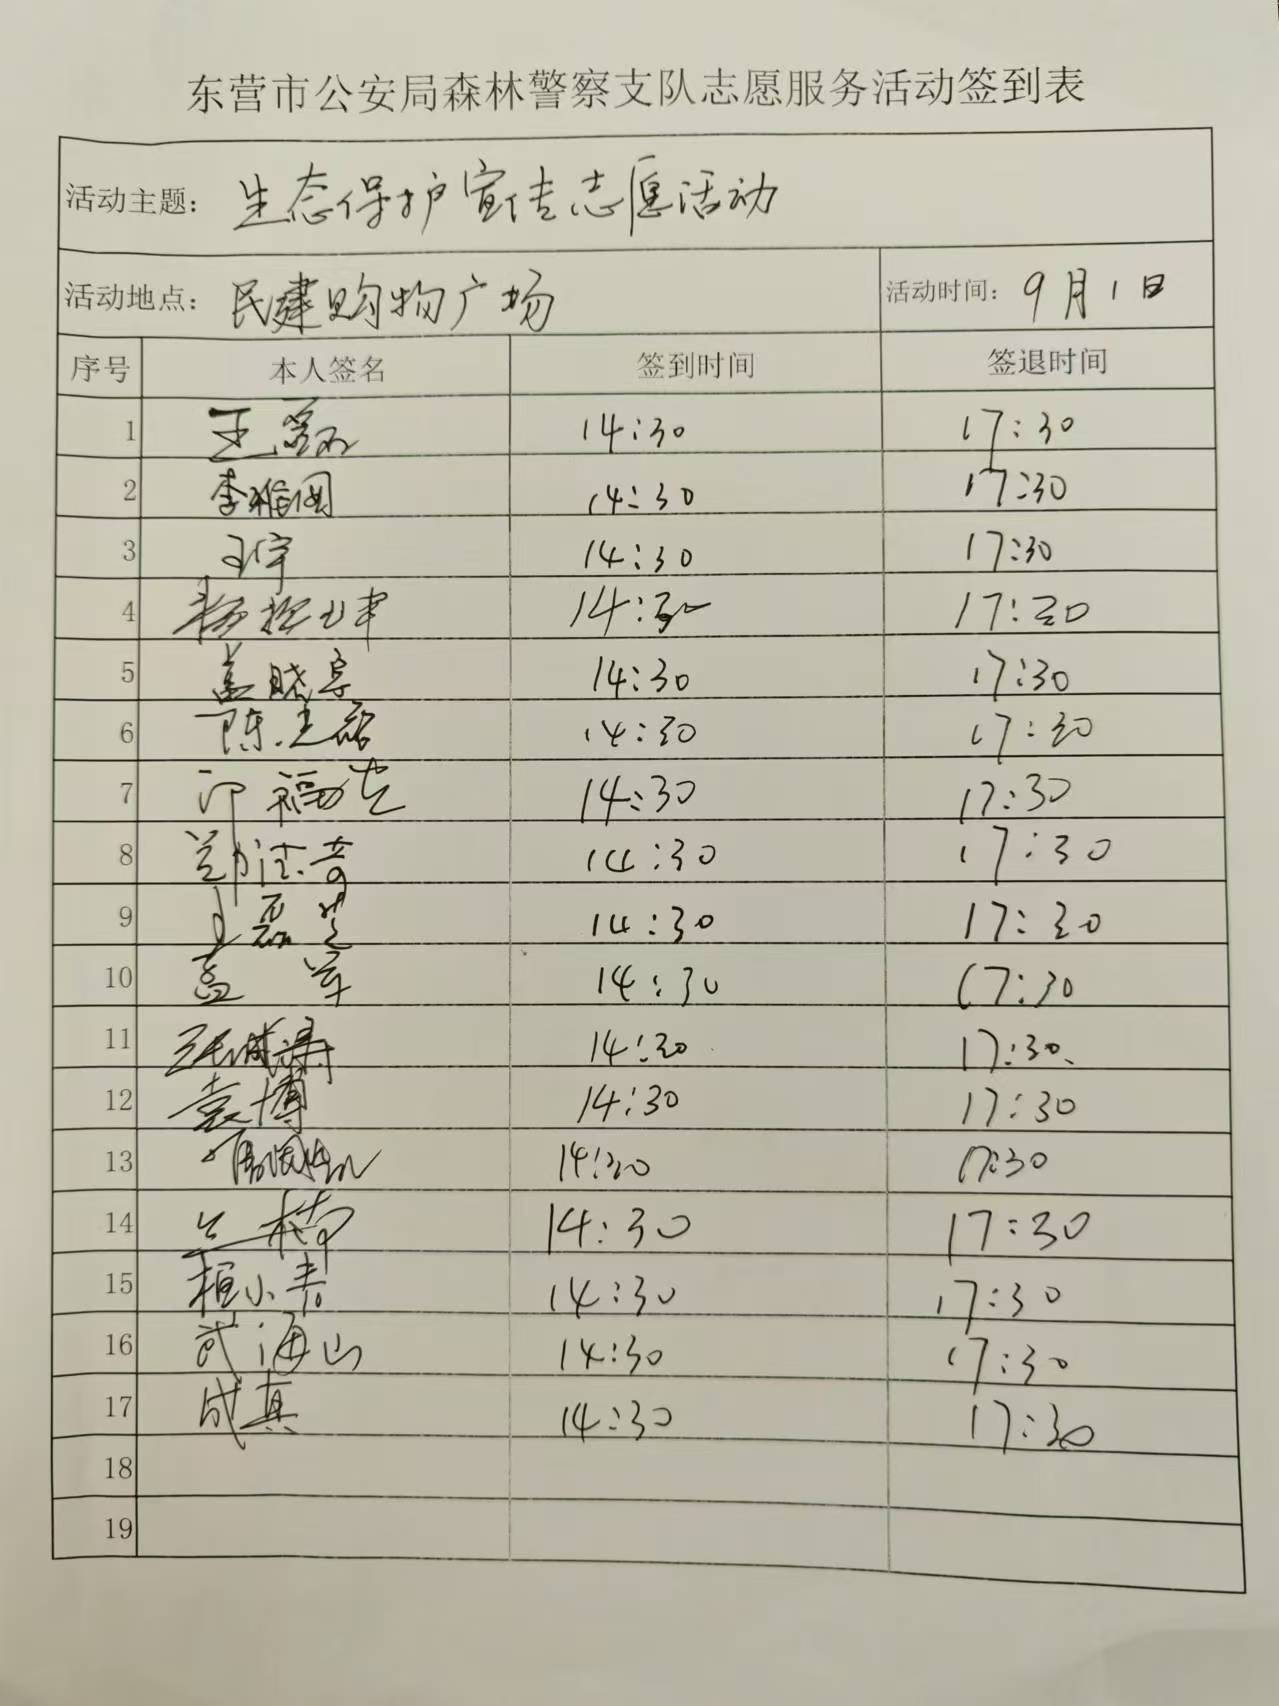 东营市公安局森林警察支队志愿服务活动签到表
活动主题: 生态保护宣传志愿活动
活动地点: 民建购物广场 活动时间: 9月1日
序号 本人签名 签到时间 签退时间
1 王磊 14:30 17:30
2 李雅囡 14:30 17:30
3 王宇 14:30 17:30
4 14:30 17:30
5 盖晓宇 14:30 17:30
6 陈 14:30 17:30
7 福 14:30 17:30
8 郑法奇 14:30 17:30
9 王磊 14:30 17:30
10 孟军 14:30 17:30
11 14:30 17:30
12 袁博 14:30 17:30
13 周 14:30 17:30
14 兰楠 14:30 17:30
15 桓小春 14:30 17:30
16 武海山 14:30 17:30
17 成真 14:30 17:30
18
19